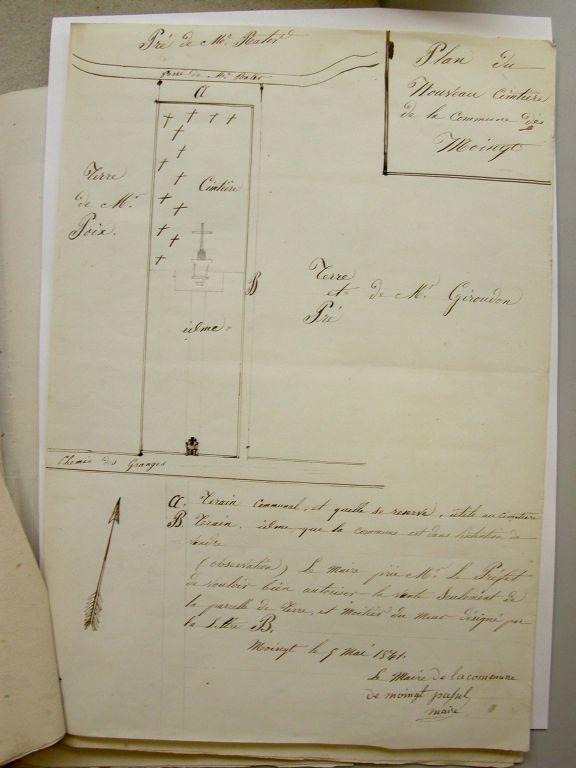 Pré de Mr. Rater
Plan du
Nouveau Cimtière
de la Commune des
Moingt
serre de Mr. Rater
A
Cimtière
Terre
de Mr.
Poix.
B
Terre
et de Mr. Giroudon
Pré
idme
Chemin des Granges
A. Terain Communal, et quelle se reserve, utile au Cimetière
B Terain idme que la commune est dans l'intention de
vendre
(observation) Le Maire prie Mr. le Préfet
de vouloir bien autoriser la vente Seulement de
la parcelle de Terre, et moitier du mur désigné par
la Lettre B.
Moingt le 9 mai 1841.
Le Maire de la commune
de moingt
maire